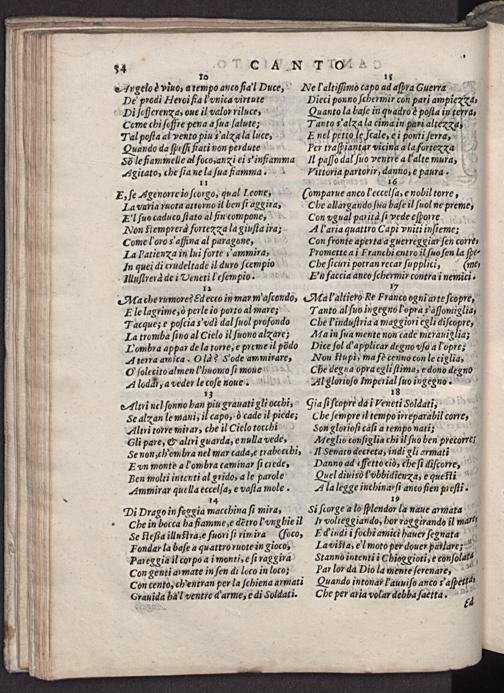 54 CANTO
10
Angelo è viuo, a tempo anco fia'l Duce,
De' prodi Heroi fia l'vnica virtute
Di sofferenza, oue il valor riluce,
Come chi soffre pena a sua salute;
Tal posta al vento piu s'alza la luce,
Quando da spessi fiati non perdute
Sò le fiammelle al foco, anzi ei s'infiamma
Agitato, che sia ne la sua fiamma.
11
E, se Agenorre io scorgo, qual Leone,
La varia ruota attorno il ben si aggira,
E'l suo caduco stato al fin compone,
Non stemprerà fortezza la giusta ira;
Come l'oro s'affina al paragone,
La Patienza in lui forte s'ammira,
In quei di crudeltade il duro scempio
Illustrerà de i Veneti l'esempio.
12
Ma che rumore? Ed ecco in mar m'ascondo,
E le lagrime, ò perle io porto al mare;
Tacque; e poscia s'vdì dal suol profondo
La tromba sino al Cielo il suono alzare;
L'ombra appar de la torre, e preme il põdo
A terra amica. Olà? S'ode ammirare,
O' solecito almen l'huomo si moue
A lodar, a veder le cose noue.
13
Altri nel sonno han piu granati gli occhi,
Se alzan le mani, il capo, ò cade il piede;
Altri torre mirar, che il Cielo tocchi
Gli pare, & altri guarda, e nulla vede,
Se non, ch'ombra nel mar cada, e trabocchi,
E vn monte a l'ombra caminar si crede,
Ben molti intenti al grido, a le parole
Ammirar quella eccelsa, e vasta mole.
14
Di Drago in foggia macchina si mira,
Che in bocca ha fiamme, e dẽtro l'vnghie il
Se stessa illustra, e fuori si rimira (foco,
Fondar la base a quattro ruote in gioco,
Pareggia il corpo a i monti, e si raggira
Con genti armate in sen di loco in loco;
Con cento, ch'entran per la schiena armati
Grauida ha'l ventre d'arme, e di Soldati.
15
Ne l'altissimo capo ad aspra Guerra
Dieci ponno schermir con pari ampiezza,
Quanto la base in quadro è posta in terra,
Tanto s'alza la cima in pari altezza,
E nel petto le scale, e i ponti serra,
Per traspiantar vicina a la fortezza
Il passo dal suo ventre a l'alte mura,
Vittoria partorir, danno, e paura.
16
Comparue anco l'eccelsa, e nobil torre,
Che allargando sua base il suol ne preme,
Con vgual parità si vede esporre
A l'aria quattro Capi vniti insieme;
Con fronte aperta a guerreggiar sen corre,
Promette a i Franchi entro il suo sen la spe-
Che sicuri potran recar supplici, (me
E'n faccia anco schermir contra i nemici.
17
Ma l'altiero Re Franco ogni arte scopre,
Tanto al suo ingegno l'opra s'assomiglia,
Che l'industria a maggiori egli discopre,
Ma in sua mente non cade merauiglia;
Dice sol d'applicar degno vso a l'opre;
Non stupì, ma fè cenno con le ciglia,
Che degna opra egli stima, e dono degno
Al glorioso Imperial suo ingegno.
18
Gia si scopre da i Veneti Soldati,
Che sempre il tempo irreparabil corre,
Son gloriosi casi a tempo nati;
Meglio consiglia chi il suo ben precorre;
Il Senato decreta, indi gli armati
Danno ad effetto ciò, che si discorre,
Quel diuisò l'vbbidienza, e questi
A la legge inchinarsi anco sien presti.
19
Si scorge a lo splendor la naue armata
Ir volteggiando, hor raggirando il mare
E d'indi i fochi amici hauer segnata
La vista, e'l moto per douer parlare;
Stanno intenti i Chioggioti, e consolata
Par lor da Dio la mente serenare,
Quando intonar l'auuiso anco s'aspetta,
Che per aria volar debba saetta.
Ed